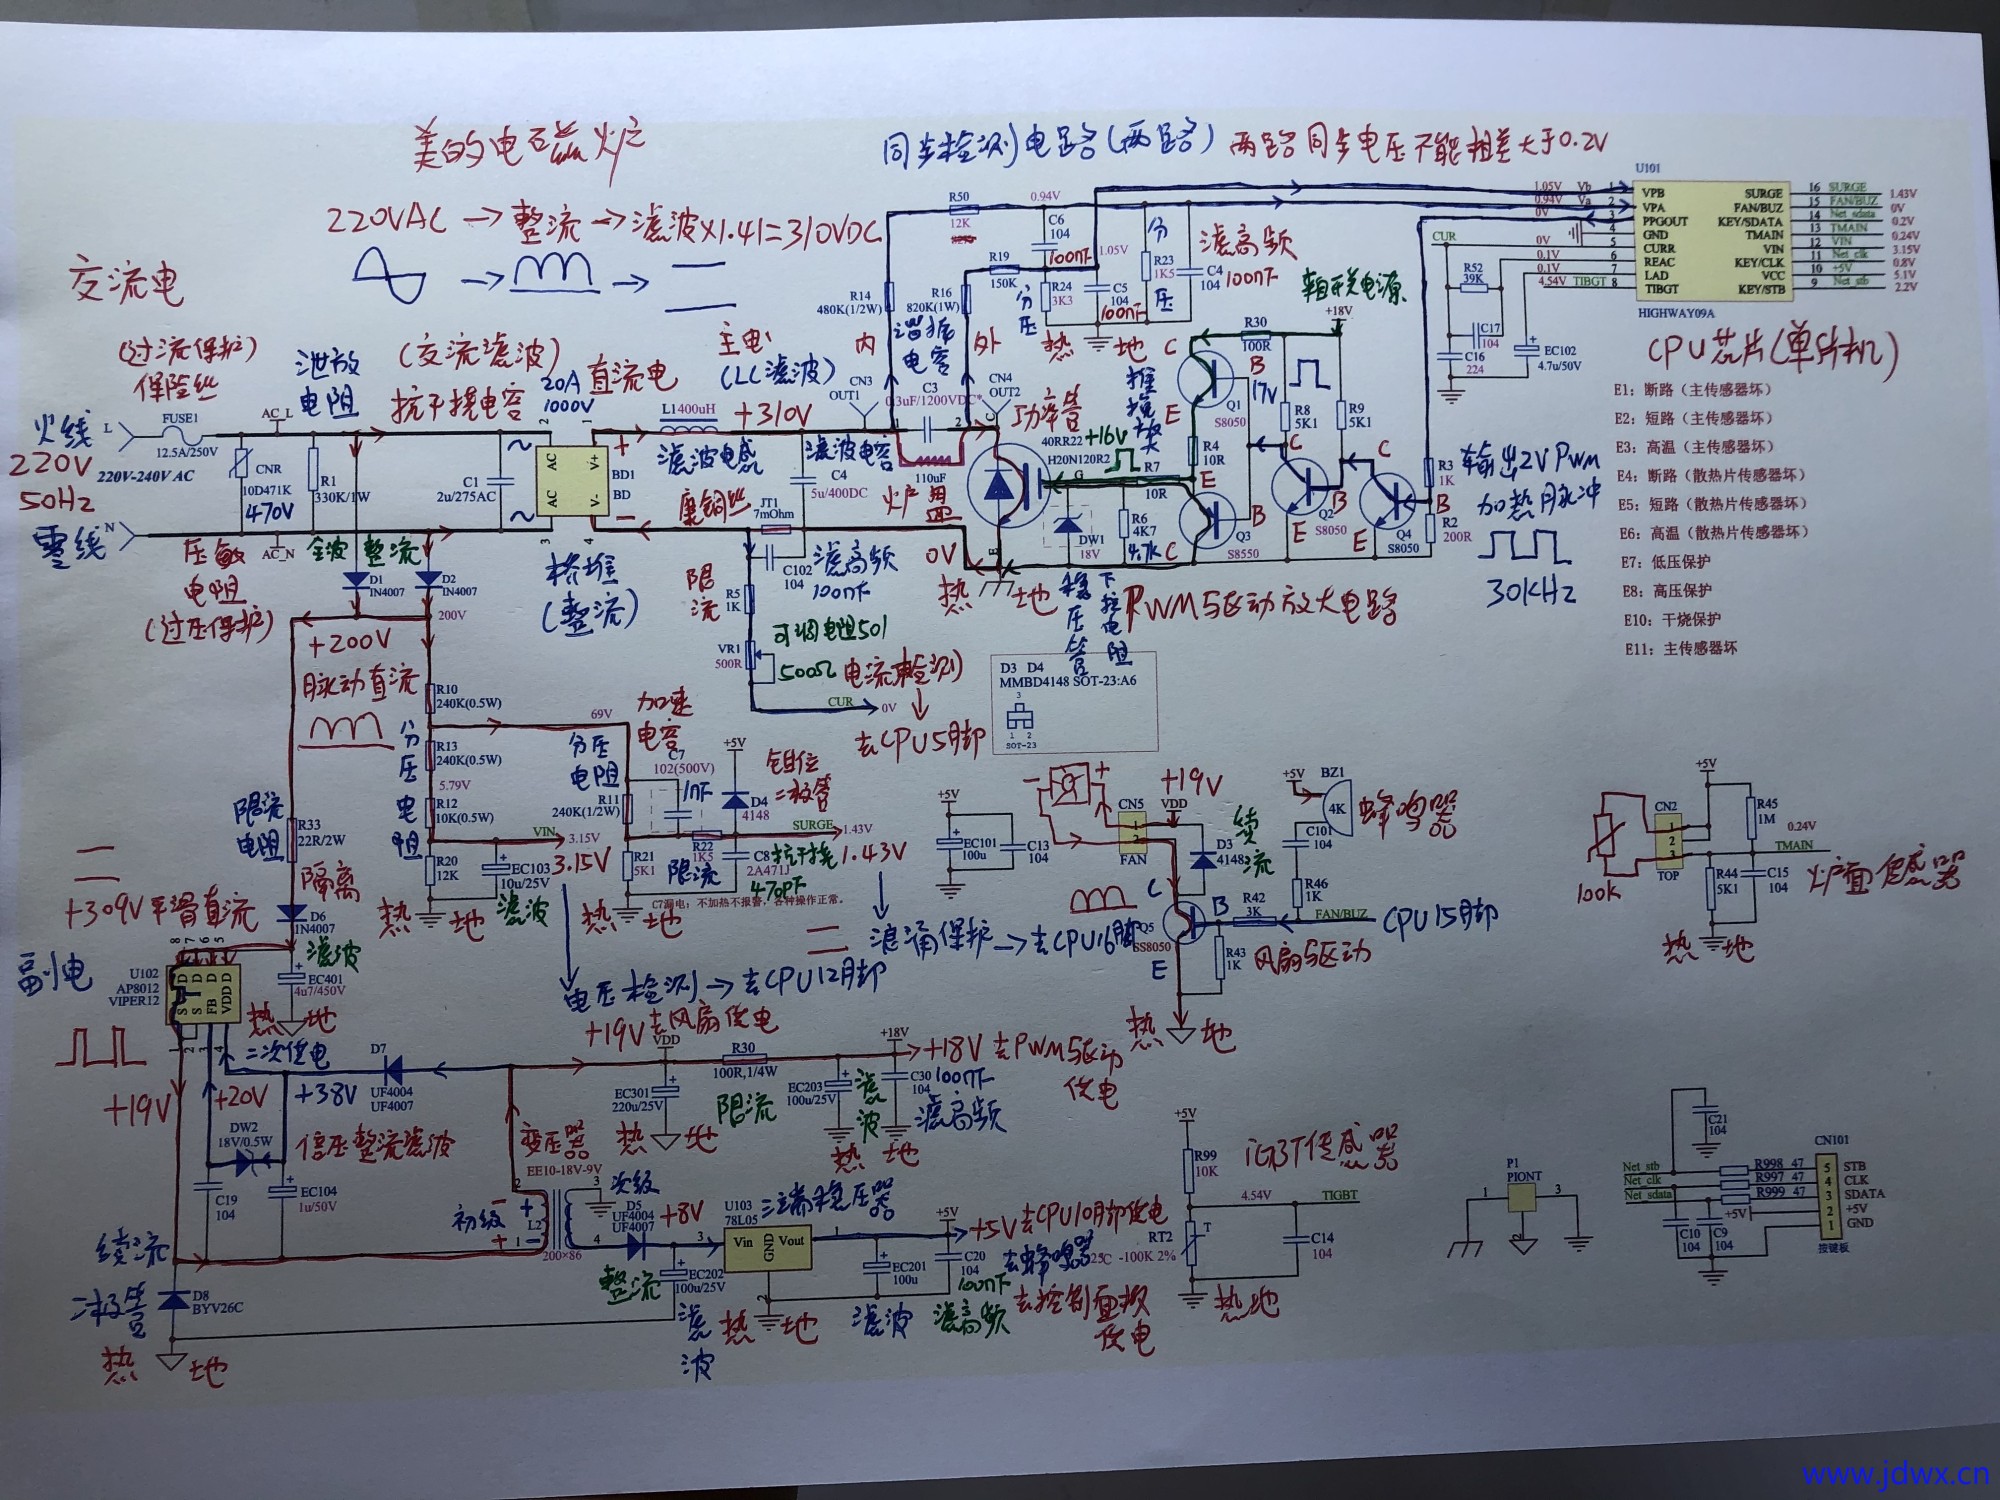 美的电磁炉
220VAC→整流→滤波×1.41=310VDC
同步检测电路(两路) 两路同步电压不能相差大于0.2V
交流电
(过流保护)
保险丝
泄放
电阻
(交流滤波)
抗干扰电容
20A
1000V
直流电
主电
(LC滤波)
火线
220V
50Hz
零线
L
N
FUSE1
12.5A/250V
220V-240V AC
AC_L
AC_N
CNR
10D471K
470V
R1
330K/1W
C1
2u/275AC
压敏
电阻
(过压保护)
全波 整流
AC
AC
V+
V-
BD1
BD
桥堆
(整流)
L1 400uH
+310V
滤波电感
康铜丝
JT1
7mOhm
滤波电容
C4
5u/400DC
C102
104
滤高频
100nF
限
流
R5
1K
VR1
500R
可调电阻501
500Ω
电流检测
CUR
0V
去CPU5脚
内
外
CN3
OUT1
CN4
OUT2
谐振
电容
C3
0.3uF/1200VDC*
110uF
炉盘
0V
热 地
功率管
40RR22
H20N120R2
+16V
G
R14
480K(1/2W)
R16
820K(1W)
R50
12K
0.94V
R19
150K
C6
104
100nF
1.05V
R24
3K3
分
压
C5
104
100nF
分
压
R23
1K5
C4
104
100nF
滤高频
热 地
辅开关电源
+18V
R30
100R
17V
R8
5K1
R9
5K1
Q1
S8050
R4
10R
R7
10R
R6
4K7
4.7k
DW1
18V
稳压管
下拉电阻
Q3
S8550
Q2
S8050
Q4
S8050
R3
1K
R2
200R
PWM驱动放大电路
输出2V PWM
加热脉冲
30KHz
CUR
R52
39K
C17
104
C16
224
EC102
4.7u/50V
U101
1.05V Vb 1 VPB
0.94V Va 2 VPA
0V 3 PPGOUT
4 GND
0V 5 CURR
0.1V 6 REAC
0.1V 7 LAD
4.54V TIBGT 8 TIBGT
SURGE 16 SURGE 1.43V
FAN/BUZ 15 FAN/BUZ 0V
KEY/SDATA 14 Net_sdata 0.2V
TMAIN 13 TMAIN 0.24V
VIN 12 VIN 3.15V
KEY/CLK 11 Net_clk 0.8V
VCC 10 +5V 5.1V
KEY/STB 9 Net_stb 2.2V
HIGHWAY09A
CPU芯片(单片机)
E1：断路（主传感器坏）
E2：短路（主传感器坏）
E3：高温（主传感器坏）
E4：断路（散热片传感器坏）
E5：短路（散热片传感器坏）
E6：高温（散热片传感器坏）
E7：低压保护
E8：高压保护
E10：干烧保护
E11：主传感器坏
D3 D4
MMBD4148 SOT-23:A6
SOT-23
D1
IN4007
D2
IN4007
200V
+200V
脉动直流
R10
240K(0.5W)
R13
240K(0.5W)
5.79V
R12
10K(0.5W)
R20
12K
分
压
电
阻
VIN 3.15V
3.15V
EC103
10u/25V
滤波
热 地
69V
分压
电阻
R11
240K(1/2W)
R21
5K1
加速
电容
C7
102(500V)
1nF
R22
1K5
限流
+5V
D4
4148
钳位
二极管
SURGE 1.43V
1.43V
C8
2A471J
470PF
抗干扰
C7漏电：不加热不报警，各种操作正常。
热 地
电压检测→去CPU12脚
浪涌保护→去CPU16脚
限流
电阻
R33
22R/2W
隔离
D6
1N4007
+309V平滑直流
滤波
EC401
4u7/450V
热 地
副电
U102
AP8012
VIPER12
二次供电
+19V
+20V
+38V
D7
UF4004
UF4007
DW2
18V/0.5W
倍压整流滤波
C19
104
EC104
1u/50V
续流
二极管
D8
BYV26C
热 地
+19V去风扇供电
VDD
R30
100R,1/4W
限流
EC301
220u/25V
热 地
EC203
100u/25V
滤
波
C30
104
100nF
滤高频
热 地
+18V
+18V去PWM驱动
供电
变压器
EE10-18V-9V
初级
次级
L2
200×86
D5
UF4004
UF4007
整流
+8V
EC202
100u/25V
滤
波
U103
78L05
三端稳压器
Vin
GND
Vout
热 地
EC201
100u
滤波
+5V
C20
104
100nF
滤高频
+5V去CPU10脚供电
去蜂鸣器
去控制面板
供电
+5V
EC101
100u
C13
104
CN5
FAN
+19V
VDD
续
流
D3
4148
Q5
SS8050
R42
3K
R43
1K
风扇驱动
热 地
+5V
BZ1
4K
蜂鸣器
C101
104
R46
1K
FAN/BUZ
CPU15脚
100k
CN2
TOP
+5V
R45
1M
0.24V
TMAIN
R44
5K1
C15
104
炉面传感器
热 地
+5V
R99
10K
4.54V
TIGBT
IGBT传感器
RT2
25C -100K 2%
C14
104
热地
P1
PIONT
C21
104
Net_stb
Net_clk
Net_sdata
R998 47
R997 47
R999 47
+5V
C10
104
C9
104
CN101
5 STB
4 CLK
3 SDATA
2 +5V
1 GND
按键板
www.jdwx.cn